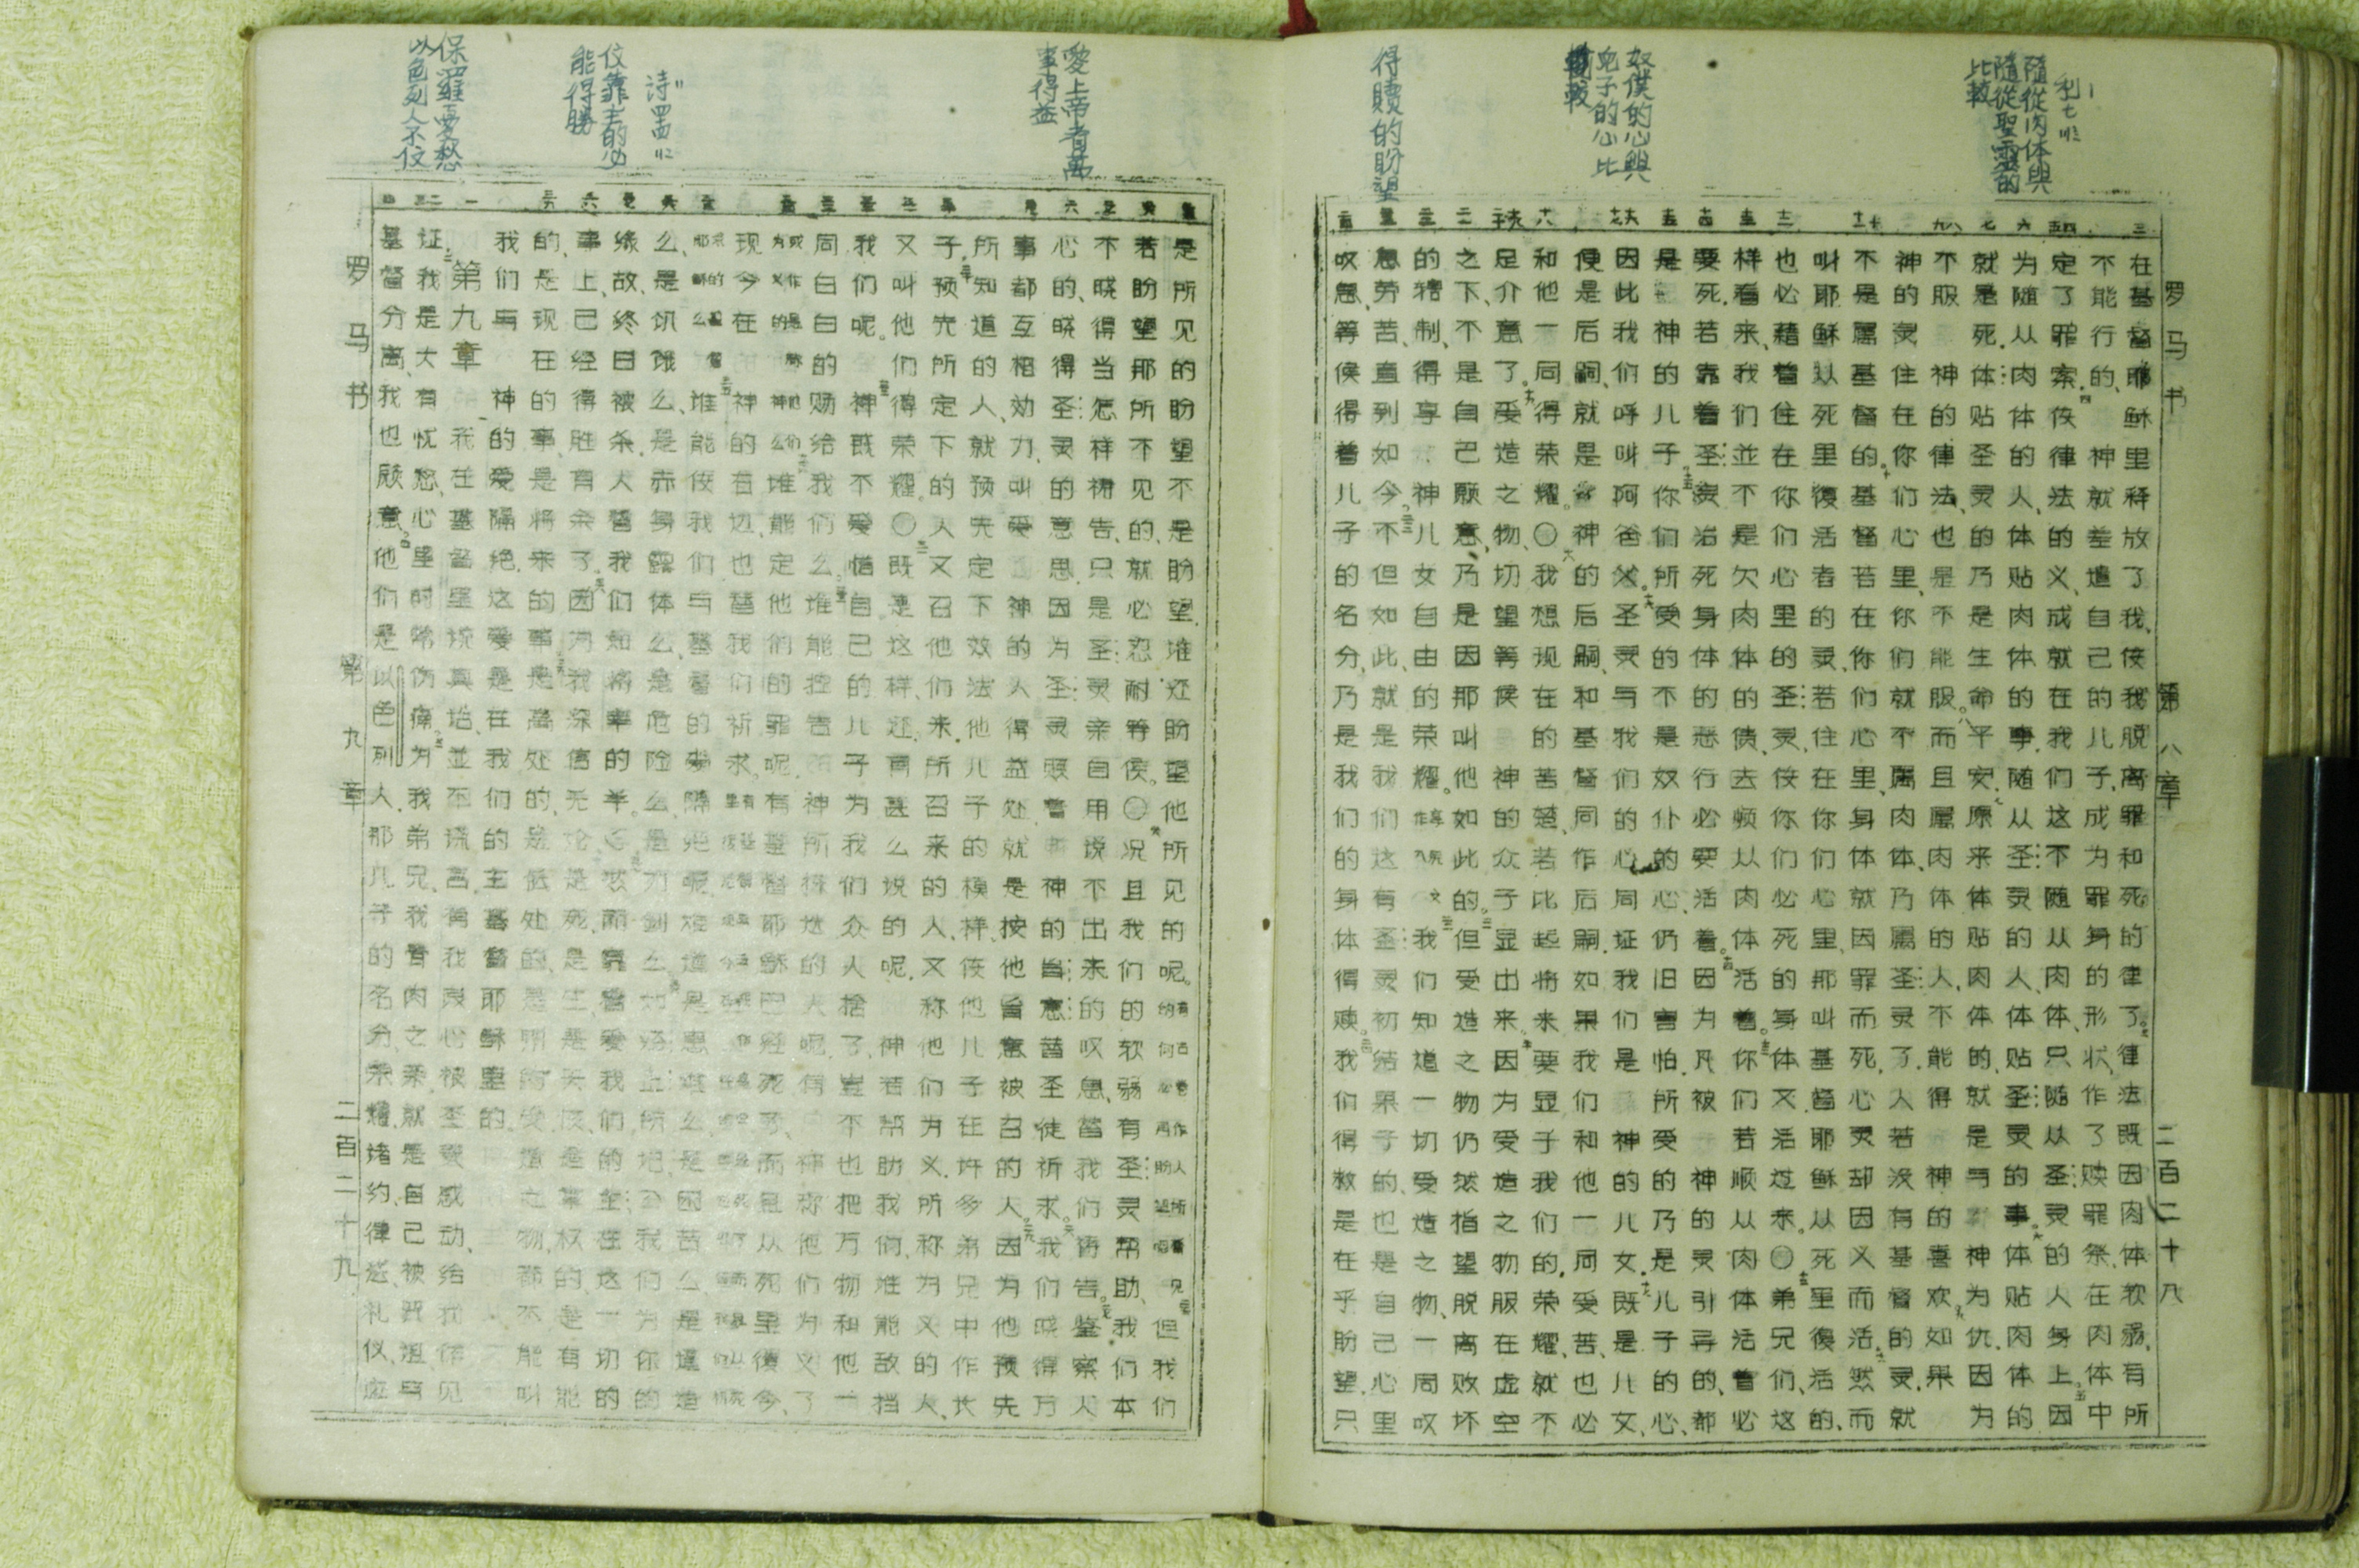 利七 11:15
隨從肉体與
隨從聖靈的
比較
奴僕的心與
兒子的心比
較
得贖的盼望
罗马书 第八章 二百二十八
在基督耶稣里释放了我、使我脱离罪和死的律了。律法既因肉体软弱、有所
不能行的、神就差遣自己的儿子、成为罪身的形状、作了赎罪祭、在肉体中
定了罪案。使律法的义、成就在我们这不随从肉体、只随从圣灵的人身上。因
为随从肉体的人、体贴肉体的事、随从圣灵的人、体贴圣灵的事。体贴肉体的
就是死.体贴圣灵的乃是生命平安.原来体贴肉体的、就是与神为仇.因为
不服神的律法、也是不能服。而且属肉体的人、不能得神的喜欢.如果
神的灵住在你们心里、你们就不属肉体、乃属圣灵了.人若没有基督的灵、就
不是属基督的。基督若在你们心里、身体就因罪而死.心灵却因义而活.然而
叫耶稣从死里復活者的灵、若住在你们心里、那叫基督耶稣从死里復活的、
也必藉着住在你们心里的圣灵、使你们必死的身体又活过来。〇弟兄们、这
样看来、我们並不是欠肉体的债、去顺从肉体活着。你们若顺从肉体活着必
要死.若靠着圣灵治死身体的恶行必要活着。因为凡被神的灵引导的、都
是神的儿子.你们所受的不是奴仆的心、仍旧害怕.所受的乃是儿子的心、
因此我们呼叫阿爸父。圣灵与我们的心同证我们是神的儿女.既是儿女、
便是后嗣、就是神的后嗣、和基督同作后嗣.如果我们和他一同受苦、也必
和他一同得荣耀。〇我想现在的苦楚若比起将来要显于我们的荣耀、就不
足介意了。受造之物、切望等候神的众子显出来.因为受造之物服在虚空
之下、不是自己愿意、乃是因那叫他如此的。但受造之物仍然指望脱离败坏
的辖制、得享神儿女自由的荣耀。我们知道一切受造之物、一同叹
息劳苦直到如今。不但如此、就是我们这有圣灵初结果子的、也是自己心里
叹息、等候得着儿子的名分、乃是我们的身体得赎.我们得救是在乎盼望.只
愛上帝者萬
事得益
詩四四 22
仗靠主的必
能得勝
保羅憂愁
以色列人不信
是所见的盼望不是盼望.谁还盼望他所见的呢。但我们
若盼望那所不见的、就必忍耐等候。〇况且我们的软弱有圣灵帮助、我们本
不晓得当怎样祷告、只是圣灵亲自用说不出来的叹息、替我们祷告。鉴察人
心的、晓得圣灵的意思.因为圣灵照着神的旨意替圣徒祈求。我们晓得万
事都互相効力、叫爱神的人得益处、就是按他旨意被召的人.因为他预先
所知道的人、就预先定下效法他儿子的模样、使他儿子在许多弟兄中作长
子.预先所定下的人又召他们来.所召来的人、又称他们为义.所称为义的人、
又叫他们得荣耀。〇既是这样、还有甚么说的呢.神若帮助我们、谁能敌挡
我们呢。神既不爱惜自己的儿子为我们众人捨了、岂不也把万物和他一
同白白的赐给我们么。谁能控告神所拣选的人呢.有神称他们为义了
谁能定他们的罪呢.有基督耶稣已经死了、而且从死里復
现今在神的右边、也替我们祈求。
谁能使我们与基督的爱隔绝呢.难道是患难么.是困苦么.是逼
么、是饥饿么、是赤身露体么、是危险么、是刀剑么.如经上所记、我们为你的
缘故、终日被杀.人看我们如将宰的羊。然而靠着爱我们的主、在这一切的
事上、己经得胜有余了.因为我深信无论是死、是生、是天使、是掌权的、是有能的
的、是现在的事、是将来的事、是高处的、是低处的、是别的受造之物、都不能叫
我们与神的爱隔绝.这爱是在我们的主基督耶稣里的
第九章
我在基督里说真话、並不谎言、有我良心被圣灵感动、给我作见
证.我是大有忧愁、心里时常伤痛.为我弟兄、我骨肉之亲、就是自己被咒诅与
基督分离我也愿意.他们是以色列人.那儿子的名分、荣耀、诸约、律法、礼仪、应
罗马书 第九章 二百二十九